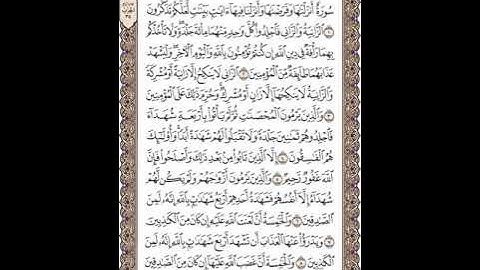 سُورَةٌ أَنزَلْنَٰهَا وَفَرَضْنَٰهَا وَأَنزَلْنَا فِيهَآ ءَايَٰتٍۭ بَيِّنَٰتٍ لَّعَلَّكُمْ تَذَكَّرُونَ
١ ٱلزَّانِيَةُ وَٱلزَّانِى فَٱجْلِدُوا۟ كُلَّ وَٰحِدٍ مِّنْهُمَا مِا۟ئَةَ جَلْدَةٍ وَلَا تَأْخُذْكُم
بِهِمَا رَأْفَةٌ فِى دِينِ ٱللَّهِ إِن كُنتُمْ تُؤْمِنُونَ بِٱللَّهِ وَٱلْيَوْمِ ٱلْـَٔاخِرِ وَلْيَشْهَدْ
عَذَابَهُمَا طَآئِفَةٌ مِّنَ ٱلْمُؤْمِنِينَ ٢ ٱلزَّانِى لَا يَنكِحُ إِلَّا زَانِيَةً أَوْ مُشْرِكَةً
وَٱلزَّانِيَةُ لَا يَنكِحُهَآ إِلَّا زَانٍ أَوْ مُشْرِكٌ وَحُرِّمَ ذَٰلِكَ عَلَى ٱلْمُؤْمِنِينَ
٣ وَٱلَّذِينَ يَرْمُونَ ٱلْمُحْصَنَٰتِ ثُمَّ لَمْ يَأْتُوا۟ بِأَرْبَعَةِ شُهَدَآءَ
فَٱجْلِدُوهُمْ ثَمَٰنِينَ جَلْدَةً وَلَا تَقْبَلُوا۟ لَهُمْ شَهَٰدَةً أَبَدًا وَأُو۟لَٰٓئِكَ
هُمُ ٱلْفَٰسِقُونَ ٤ إِلَّا ٱلَّذِينَ تَابُوا۟ مِنۢ بَعْدِ ذَٰلِكَ وَأَصْلَحُوا۟ فَإِنَّ
ٱللَّهَ غَفُورٌ رَّحِيمٌ ٥ وَٱلَّذِينَ يَرْمُونَ أَزْوَٰجَهُمْ وَلَمْ يَكُن لَّهُمْ
شُهَدَآءُ إِلَّآ أَنفُسُهُمْ فَشَهَٰدَةُ أَحَدِهِمْ أَرْبَعُ شَهَٰدَٰتٍۭ بِٱللَّهِ إِنَّهُۥ لَمِنَ
ٱلصَّٰدِقِينَ ٦ وَٱلْخَٰمِسَةُ أَنَّ لَعْنَتَ ٱللَّهِ عَلَيْهِ إِن كَانَ مِنَ ٱلْكَٰذِبِينَ
٧ وَيَدْرَؤُا۟ عَنْهَا ٱلْعَذَابَ أَن تَشْهَدَ أَرْبَعَ شَهَٰدَٰتٍۭ بِٱللَّهِ إِنَّهُۥ لَمِنَ
ٱلْكَٰذِبِينَ ٨ وَٱلْخَٰمِسَةَ أَنَّ غَضَبَ ٱللَّهِ عَلَيْهَآ إِن كَانَ مِنَ ٱلصَّٰدِقِينَ